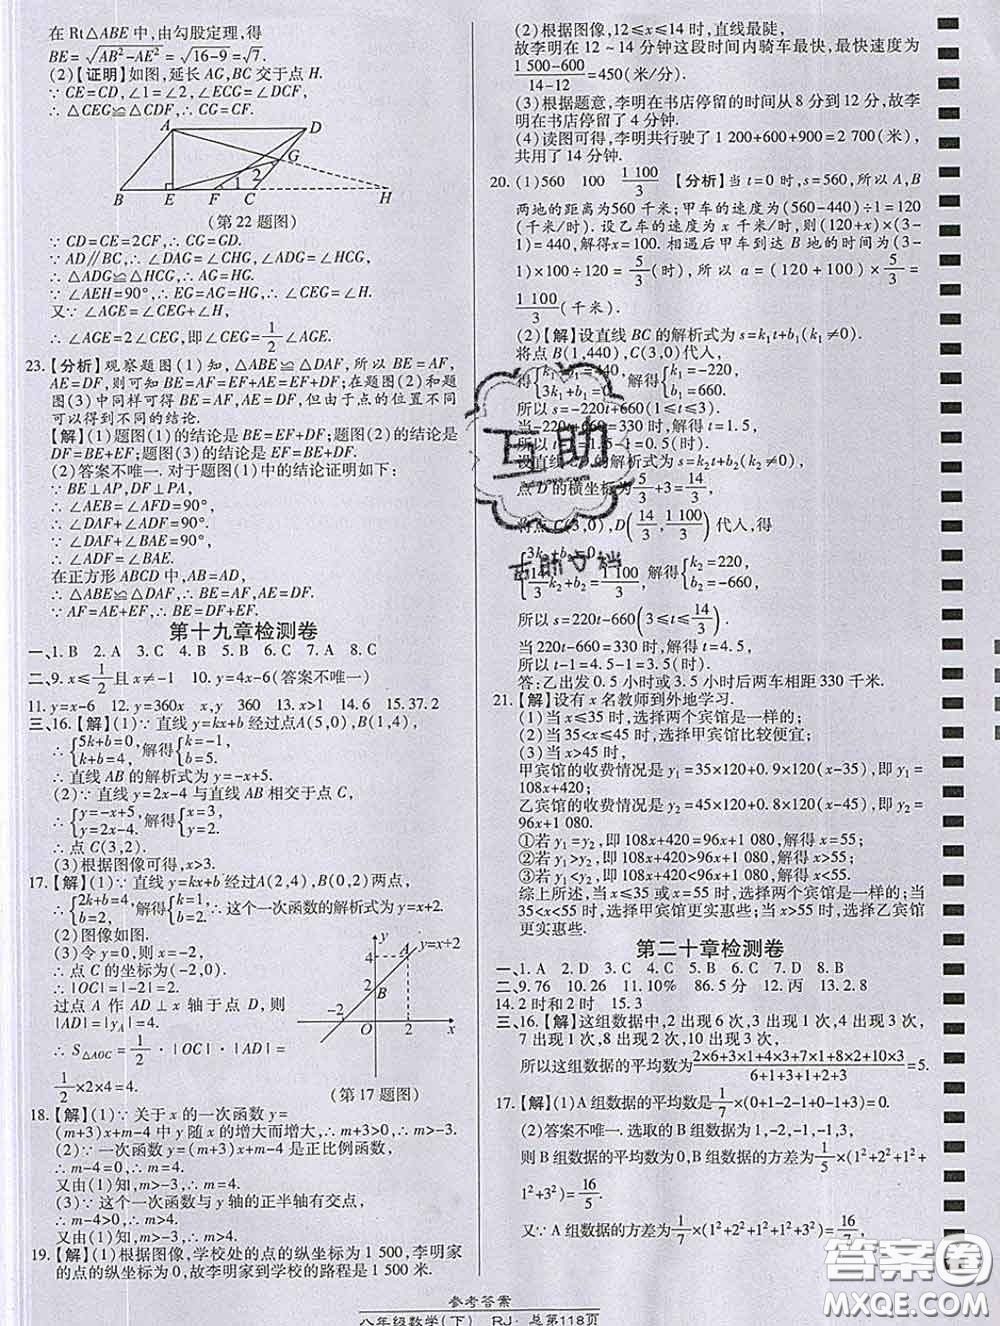 在 Rt△ABE 中,由勾股定理,得
BE=√(AB²-AE²)=√(16-9)=√7.
(2)【证明】如图,延长 AG,BC 交于点 H.
∵ CE=CD,∠1=∠2,∠ECG=∠DCF,
∴ △CEG≌△CDF,∴ CG=CF.
A D G 2 1 B E F C H
(第 22 题图)
∵ CD=CE=2CF,∴ CG=GD.
∵ AD∥BC,∴ ∠DAG=∠CHG,∠ADG=∠HCG,
∴ △ADG≌△HCG,∴ AG=HG.
∵ ∠AEH=90°,∴ EG=AG=HG,∴ ∠CEG=∠H.
又∵ ∠AGE=∠CEG+∠H,
∴ ∠AGE=2∠CEG,即∠CEG=1/2∠AGE.
23.【分析】观察题图(1)知,△ABE≌△DAF,所以 BE=AF,
AE=DF,则可知 BE=AF=EF+AE=EF+DF;在题图(2)和题
图(3)中同样可得 BE=AF,AE=DF,但由于点的位置不同
可以得到不同的结论.
【解】(1)题图(1)的结论是 BE=EF+DF;题图(2)的结论
是 BE=DF-EF;题图(3)的结论是 BE=EF-DF.
(2)答案不唯一.对于题图(1)中的结论证明如下:
∵ BE⊥AP,DF⊥PA,
∴ ∠AEB=∠AFD=90°,
∴ ∠DAF+∠ADF=90°.
∵ ∠DAF+∠BAE=90°,
∴ ∠ADF=∠BAE.
在正方形 ABCD 中,AB=AD,
∴ △ABE≌△DAF,∴ BE=AF,AE=DF.
∵ AF=AE+EF,∴ BE=DF+EF.
第十九章检测卷
一、1. B 2. A 3. C 4. B 5. B 6. C 7. A 8. C
二、9. x≤1/2且 x≠-1 10. y=4x-6(答案不唯一)
11. y=x-6 12. y=360x x,y 360 13. x>1 14. 6 15. 37.2
三、16.【解】(1)∵ 直线 y=kx+b 经过点 A(5,0),B(1,4),
∴ {5k+b=0, k+b=4, 解得{k=-1, b=5.
∴ 直线 AB 的解析式为 y=-x+5.
(2)∵ 直线 y=2x-4 与直线 AB 相交于点 C,
∴ {y=-x+5, y=2x-4. 解得{x=3, y=2.
∴ 点 C(3,2).
(3)根据图像可得,x>3.
17.【解】(1)∵ 直线 y=kx+b 经过A(2,4),B(0,2)两点,
∴ {2k+b=4, b=2, 解得{k=1, b=2. ∴ 这个一次函数的解析式为 y=x+2.
(2)图像如图.
(3)令 y=0,则 x=-2.
∴ 点 C 的坐标为(-2,0).
∴ |OC|=|-2|=2.
过点 A 作 AD⊥x 轴于点 D,则
|AD|=|yA|=4.
∴ S△AOC=1/2·|OC|·|AD|=
1/2×2×4=4.
y 4 A y=x+2 2 B -2 O 2 x
(第 17 题图)
18.【解】(1)∵ 关于 x 的一次函数 y=
(m+3)x+m-4 中 y 随 x 的增大而增大,∴ m+3>0,∴ m>-3.
(2)∵ 一次函数 y=(m+3)x+m-4 是正比例函数,
∴ m-4=0,∴ m=4.
又由(1)知,m>-3,∴ m=4.
(3)∵ 这个一次函数与 y 轴的正半轴有交点,
∴ m-4>0,∴ m>4.
又由(1)知,m>-3,∴ m>4.
19.【解】(1)根据图像,学校处的点的纵坐标为 1 500,李明家
的点的纵坐标为 0,故李明家到学校的路程是 1 500 米.
(2)根据图像,12≤x≤14 时,直线最陡,
故李明在 12～14 分钟这段时间内骑车最快,最快速度为
(1 500-600)/(14-12)=450(米/分).
(3)根据题意,李明在书店停留的时间从8 分到 12 分,故李
明在书店停留了 4 分钟.
(4)读图可得,李明共行驶了 1 200+600+900=2 700(米),
共用了 14 分钟.
20. (1)560 100 1 100/3 【分析】当 t=0 时,s=560,所以 A,B
两地的距离为560 千米;甲车的速度为(560-440)÷1=120
(千米/时).设乙车的速度为 x 千米/时,则(120+x)×(3-
1)=440,解得x=100.相遇后甲车到达 B 地的时间为(3-
1)×100÷120=5/3(时),所以 a=(120+100)×5/3=
1 100/3(千米).
(2)【解】设直线 BC 的解析式为 s=k₁t+b₁(k₁≠0).
将点 B(1,440),C(3,0)代入,
得{k₁+b₁=440, 3k₁+b₁=0, 解得{k₁=-220, b₁=660.
所以 s=-220t+660(1≤t≤3).
当-220t+660=330 时,解得 t=1.5,
所以 t-1=1.5-1=0.5.
设直线 CD 的解析式为 s=k₂t+b₂(k₂≠0),
点 D 的横坐标为5/3+3=14/3,
将点 C(3,0),D(14/3,1 100/3)代入,得
{3k₂+b₂=0, 14/3k₂+b₂=1 100/3, 解得{k₂=220, b₂=-660,
所以 s=220t-660(3≤t≤14/3).
当 220t-660=330 时,解得 t=4.5,
所以 t-1=4.5-1=3.5.
答:乙出发 0.5 小时或 3.5 小时后两车相距 330 千米.
21.【解】设有 x 名教师到外地学习.
(1)当 x≤35 时,选择两个宾馆是一样的;
(2)当 35<x≤45 时,选择甲宾馆比较便宜;
(3)当 x>45 时,
甲宾馆的收费情况是 y₁=35×120+0.9×120(x-35),即 y₁=
108x+420;
乙宾馆的收费情况是 y₂=45×120+0.8×120(x-45),即 y₂=
96x+1 080.
①若 y₁=y₂,即 108x+420=96x+1 080,解得 x=55;
②若 y₁>y₂,即 108x+420>96x+1 080,解得 x>55;
③若 y₁<y₂,即 108x+420<96x+1 080,解得 x<55;
综上所述,当 x≤35 或 x=55 时,选择两个宾馆是一样的;当
35<x<55 时,选择甲宾馆更实惠些;当 x>55 时,选择乙宾馆
更实惠些.
第二十章检测卷
一、1. A 2. D 3. C 4. C 5. B 6. C 7. D 8. B
二、9. 76 10. 26 11. 10% 86.5 分 12. 丙 13. 2.8
14. 2 时和 2 时 15. 3
三、16.【解】这组数据中,2 出现 6 次,3 出现 1 次,4 出现 3 次,
7 出现 1 次,8 出现 2 次,10 出现 3 次,
所以这组数据的平均数为(2×6+3×1+4×3+7×1+8×2+10×3)/(6+1+3+1+2+3)=5.
17.【解】(1)A 组数据的平均数是1/7×(0+1-2-1+0-1+3)=0.
(2)答案不唯一.选取的 B 组数据为 1,-2,-1,-1,3,
则 B 组数据的平均数为0,B组数据的方差为1/5×(1²+2²+1²+
1²+3²)=16/5.
又∵ A 组数据的方差为1/7×(1²+2²+1²+1²+3²)=16/7,
互助
互助文档
答案圈
MXQE.COM
参考答案
八年级数学(下) RJ· 总第118页